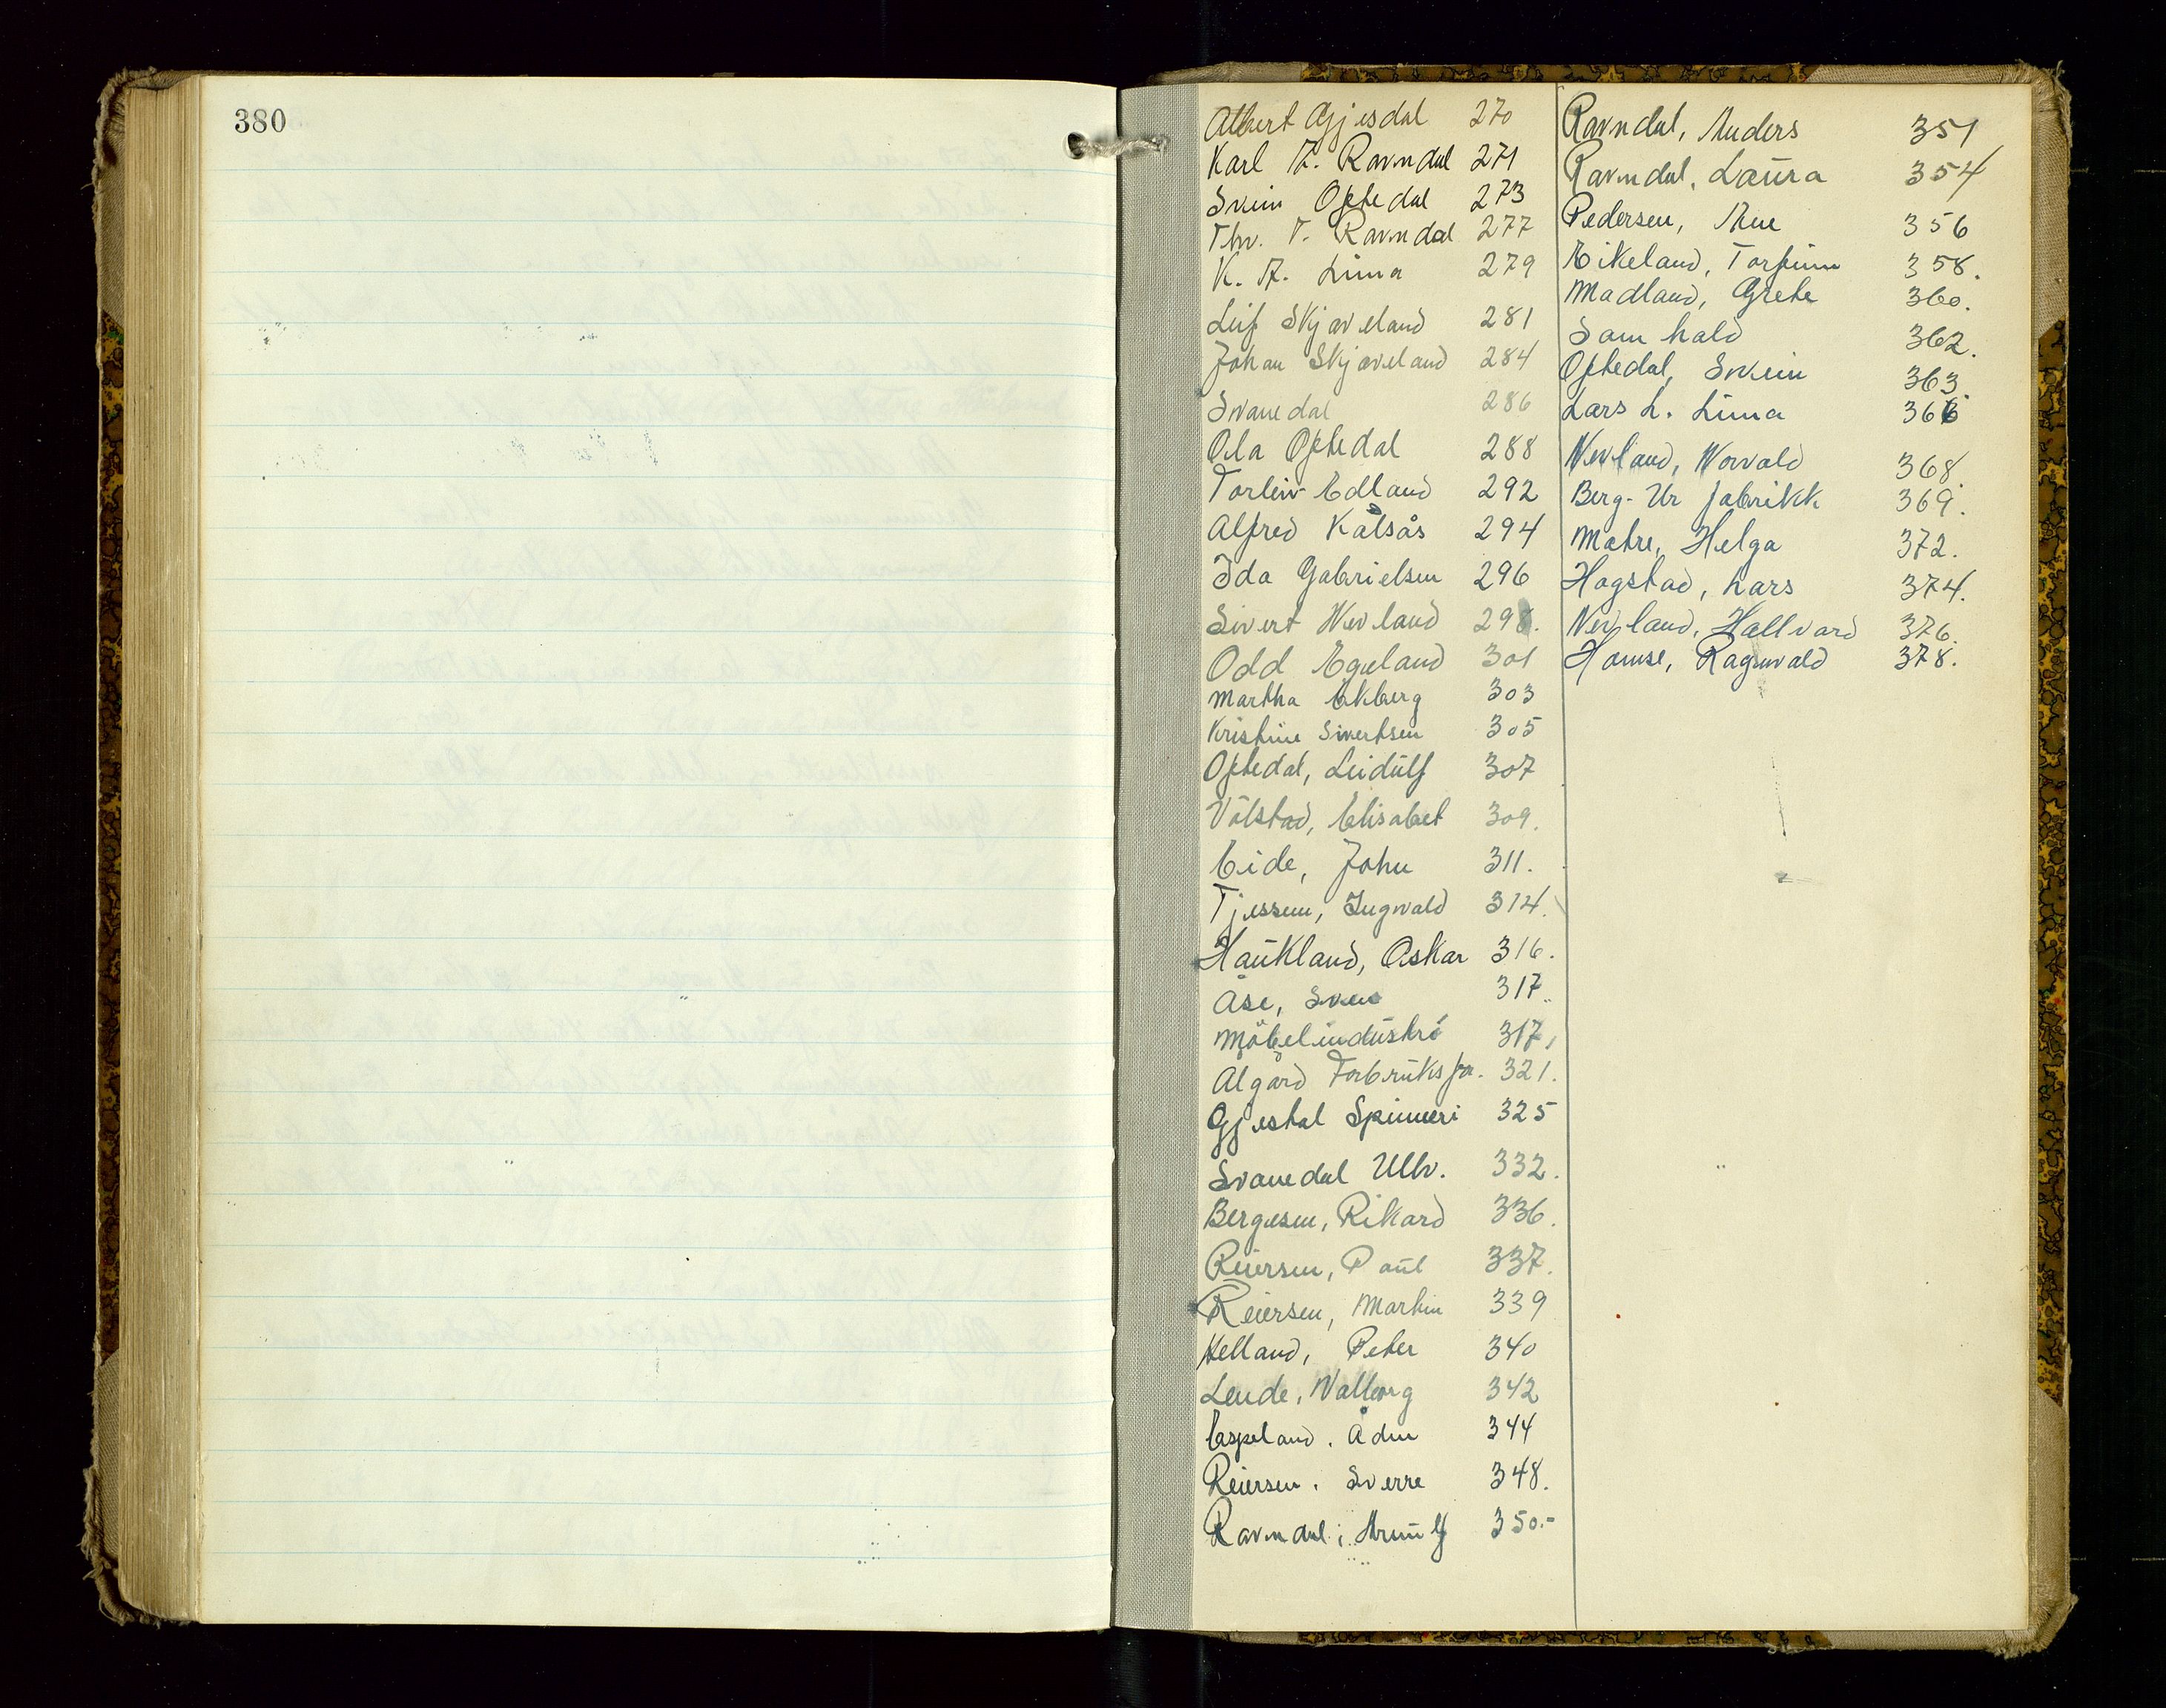 380
Albert Gjesdal 270
Karl T. Ravndal 271
Svein Optedal 273
Thv. T. Ravndal 277
K. A. Lima 279
Leif Skjæveland 281
Johan Skjæveland 284
Svanedal 286
Ola Optedal 288
Torleiv Edland 292
Alfred Kalsås 294
Ida Gabrielsen 296
Sivert Nevland 298.
Odd Egeland 301
Martha Ekberg 303
Kristine Sivertsen 305
Optedal, Leidulf 307
Vølstad, Elisabet 309.
Eide, John 311.
Tjessem, Ingvald 314.
Haukland, Oskar 316.
Åse, Svein 317.
Møbelindustri 317,
Ålgård Forbruksfor. 321.
Gjestal Spinneri 325
Svanedal Ullv. 332.
Bergesen, Rikard 336.
Reiersen, Paul 337.
Reiersen, Martin 339
Helland, Peter 340
Lende, Valborg 342
Espeland. Ådne 344
Reiersen. Sverre 348.
Ravndal; Arnulf 350.-
Ravndal, Anders 351
Ravndal, Laura 354
Pedersen, Ane 356
Eikeland, Torfinn 358.
Madland, Grete 360.
Samhald 362.
Optedal, Svein 363.
Lars L. Lima 366
Nevland, Norvald 368.
Berg-Ur fabrikk 369.
Matre, Helga 372.
Hogstad, Lars 374.
Nevland, Hallvard 376.
Homse, Ragnvald 378.